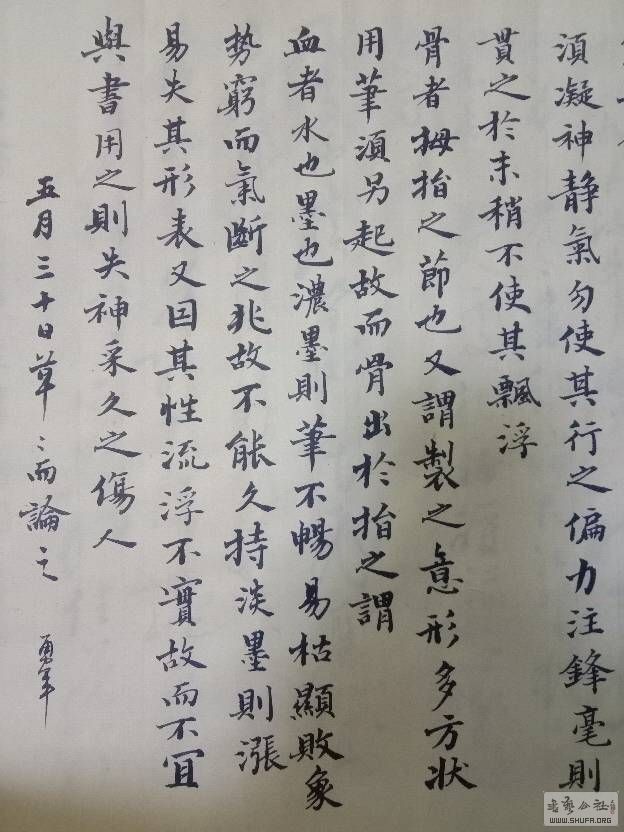 須凝神静氣勿使其行之偏力注鋒毫則
貫之於末稍不使其飄浮
骨者拇指之節也又謂製之意形多方状
用筆須另起故而骨出於指之謂
血者水也墨也濃墨則筆不暢易枯顯敗象
势窮而氣斷之兆故不能久持淡墨則漲
易失其形表又因其性流浮不實故而不宜
與書用之則失神采久之傷人
五月三十日草〻而論之
勇年
书法公社
WWW.SHUFA.ORG